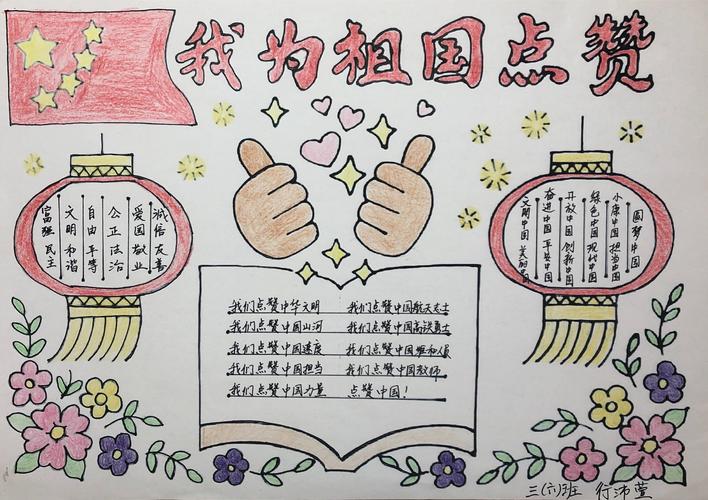 我为祖国点赞
富强 民主
文明 和谐
自由 平等
公正 法治
爱国 敬业
诚信 友善
文明中国 美丽中国
奋进中国 平安中国
开放中国 创新中国
绿色中国 现代中国
小康中国 担当中国
圆梦中国
我们点赞中华文明 我们点赞中国航天志士
我们点赞中国山河 我们点赞中国高铁勇士
我们点赞中国速度 我们点赞中国维和人员
我们点赞中国担当 我们点赞中国教师
我们点赞中国力量 点赞中国!
三(六)班 行沛萱